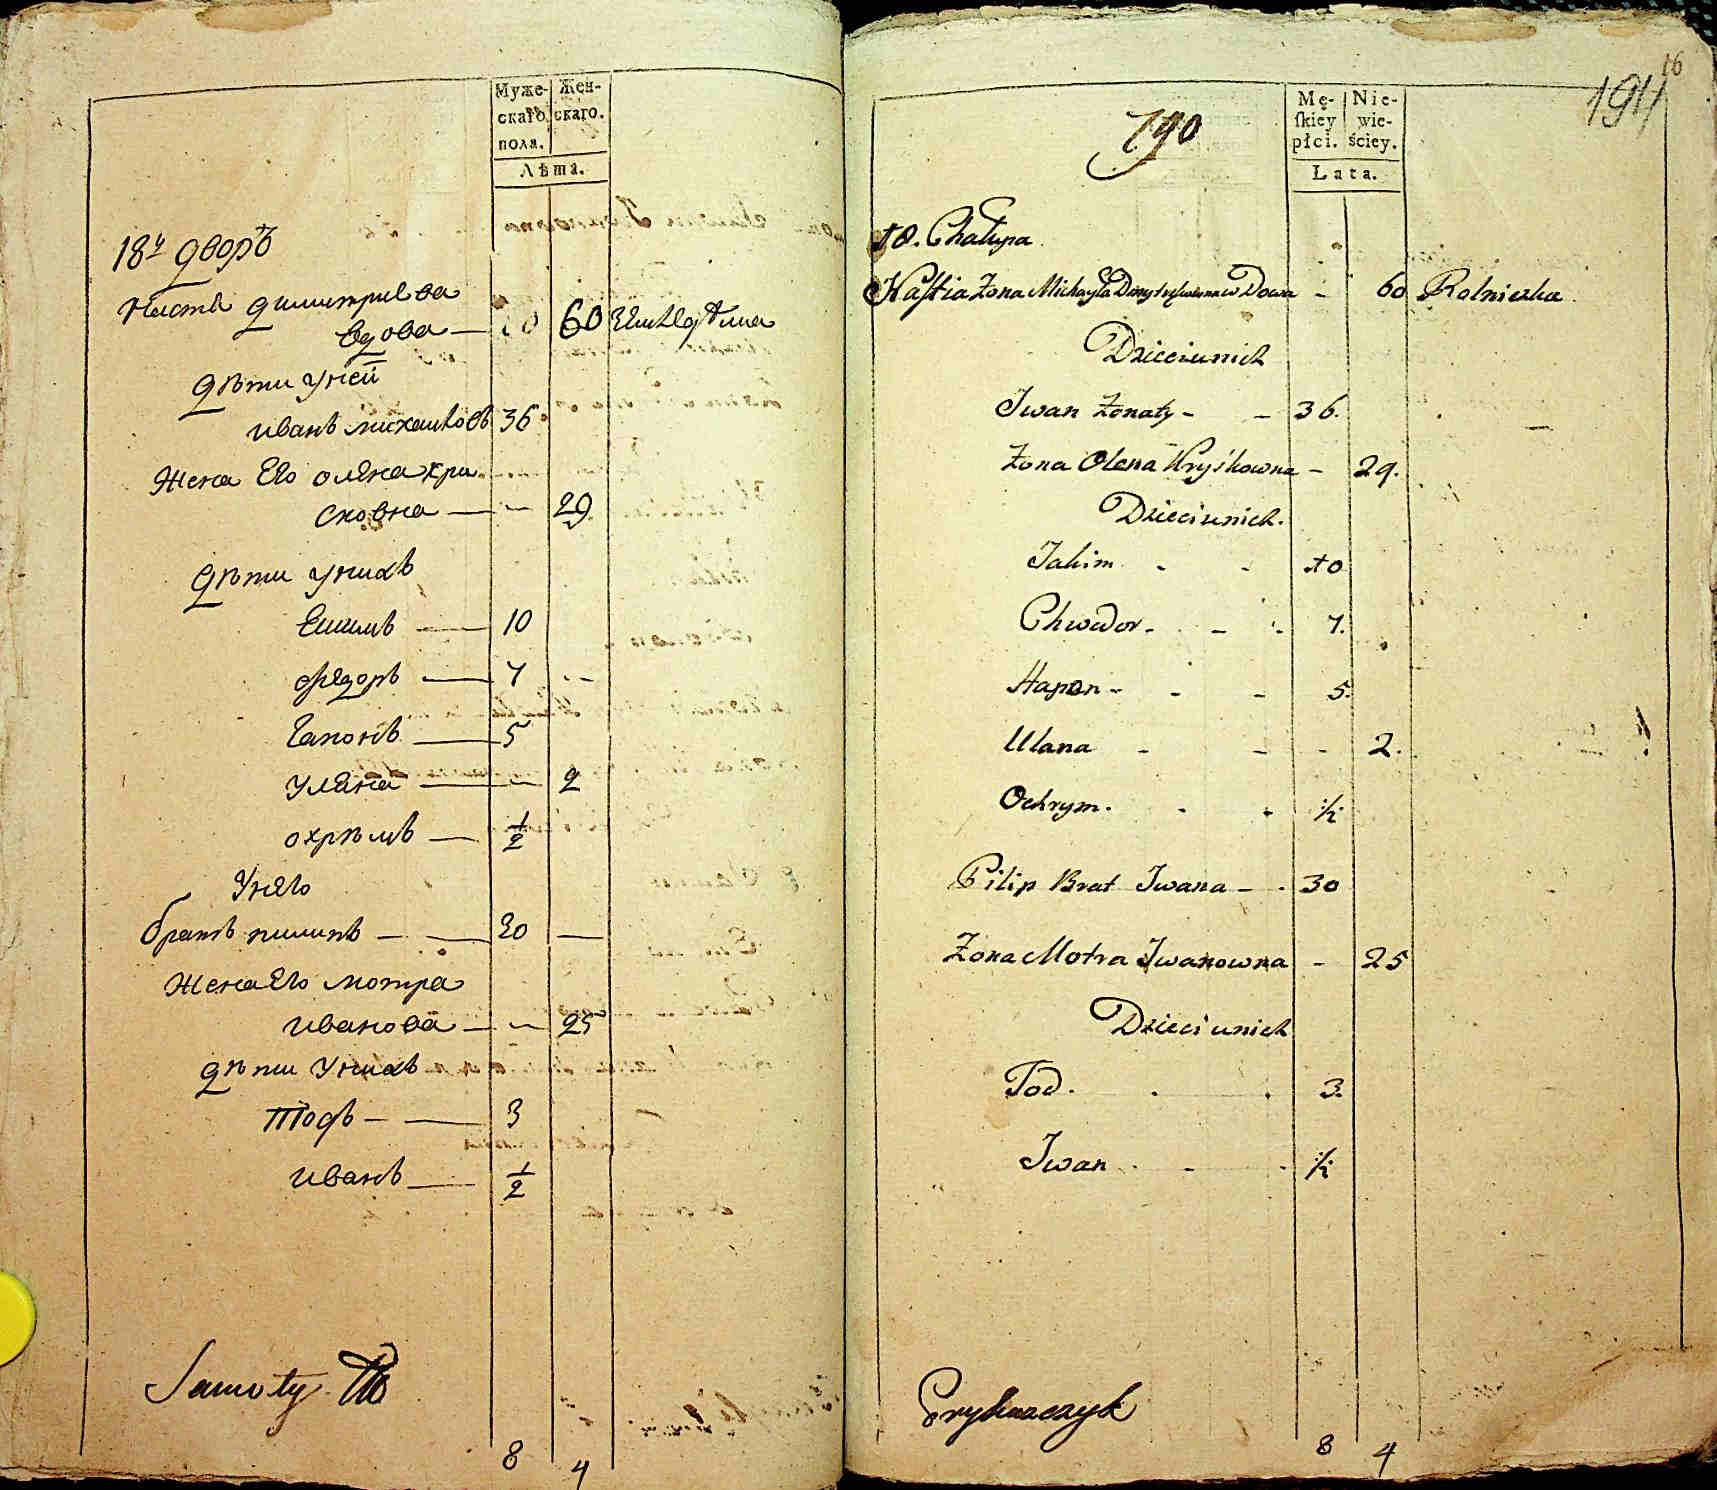 Муже- Жен-
скаго скаго.
пола.
Лѣта.
18й дворъ
Настя димитриева
вдова — 60 земледелица
дѣти у ней
иванъ михаиловъ 36
Жена Его олена хри
сковна — 29
дѣти у нихъ
Екимъ — 10
федоръ — 7
Гапонъ — 5
уляна — 2
охримъ — 1/2
У него
братъ пилипъ — 30
Жена Его мотра
иванова — 25
дѣти у нихъ
тодъ — 3
иванъ — 1/2
8 4
16
191
190
Mę- Nie-
ſkiey wie-
płci. ściey.
Lata.
18. Chałupa
Nastia Żona Michayła Wdowa - 60 Rolniczka
Dzieci u nich
Iwan Żonaty - - 36.
Żona Olena Hryśkowna - 29.
Dzieci u nich.
Jakim - - 10
Chwedor - - 7.
Hapon - - 5.
Ulana - - - 2.
Ochrym. - - 1/2
Filip Brat Iwana - - 30
Żona Motra Iwanowna - 25
Dzieci u nich
Tod. . . 3.
Iwan - - 1/2
8 4